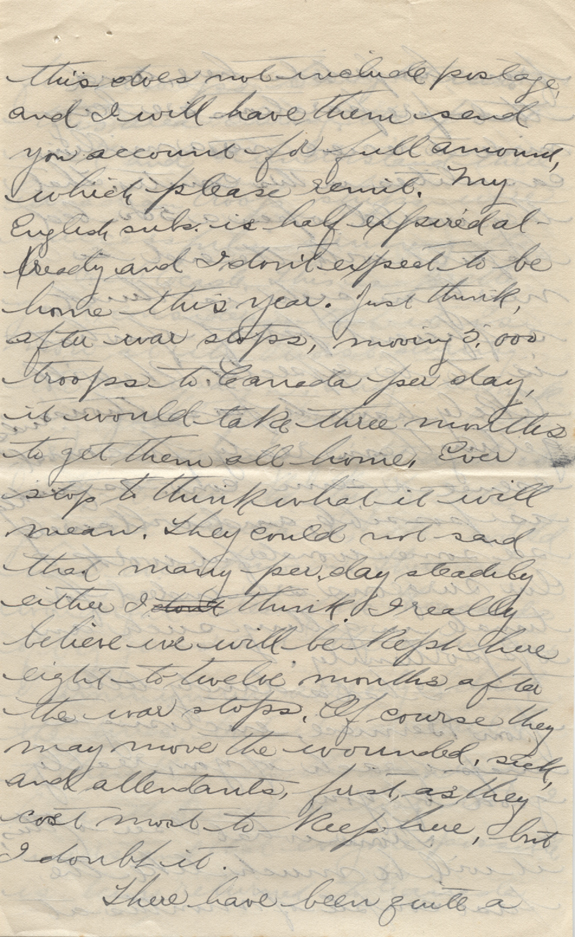 this does not include postage,
and I will have them send
you account for full amount,
which please remit. My
English subs. is half expired al-
ready and I don't expect to be
home this year. Just think,
after war stops, moving 5,000
troops to Canada per day,
it would take three months
to get them all home. Ever
stop to think what it will
mean. They could not said
that many per day steadily
either I don't think. I really
believe we will be kept here
eight to twelve months after
the war stops. Of course they
may move the wounded, sick,
and attendants, first, as they
cost most to keep here, but
I doubt it.
There have been quite a